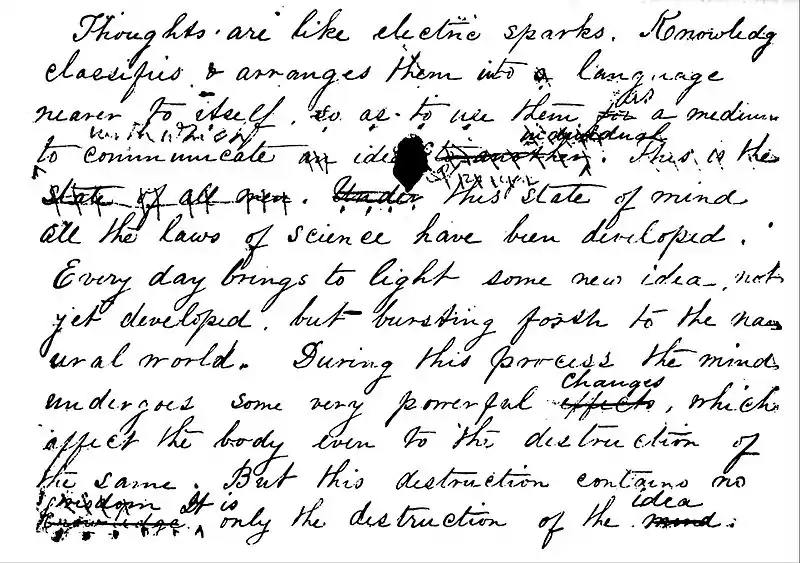 Thoughts are like electric sparks. Knowledg
classifies & arranges them into a language
nearer to itself, so as to use them for as a medium
with which
to communicate an idea to another individual. This is the
state of all men. Under this state of mind
all the laws of science have been developed.
Every day brings to light some new idea, not
yet developed, but bursting forth to the na
ural world. During this process the mind
changes
undergoes some very powerful effects, which
affect the body even to the destruction of
the same. But this destruction contains no
wisdom It is idea
knowledge only the destruction of the mind.